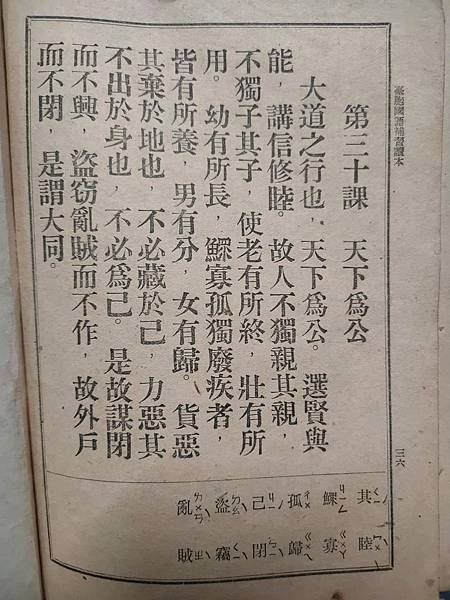 臺胞國語補習讀本
第三十課　天下爲公
大道之行也，天下爲公。選賢與
能，講信修睦。故人不獨親其親，
不獨子其子，使老有所終，壯有所
用。幼有所長，鰥寡孤獨廢疾者，
皆有所養，男有分，女有歸。貨惡
其棄於地也，不必藏於己，力惡其
不出於身也，不必爲己。是故謀閉
而不興，盜窃亂賊而不作，故外戶
而不閉，是謂大同。
三六
其 睦
鰥 寡
孤 歸
己 閉
盜 竊
亂 賊